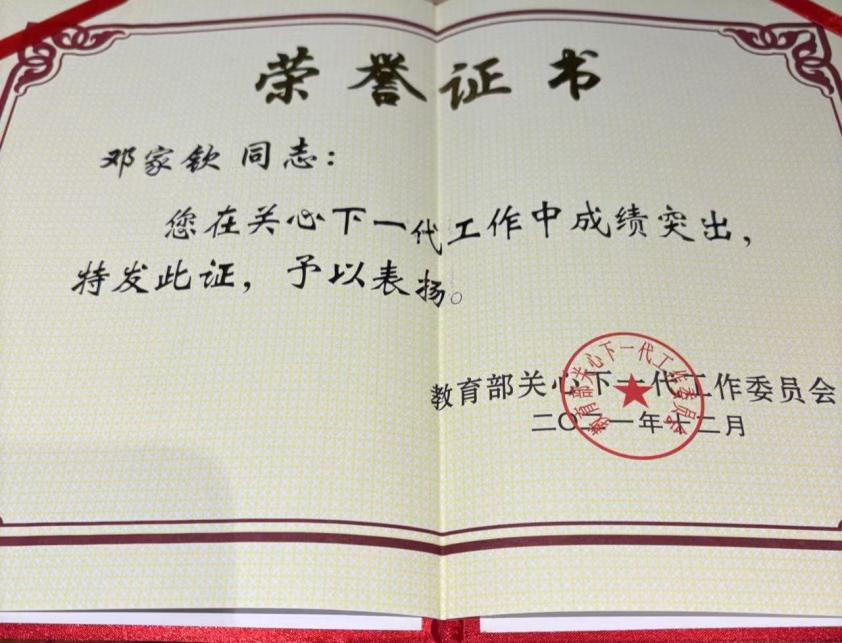 荣誉证书
邓家钦同志：
您在关心下一代工作中成绩突出，
特发此证，予以表扬。
教育部关心下一代工作委员会
二〇二一年十二月
教育部关心下一代工作委员会